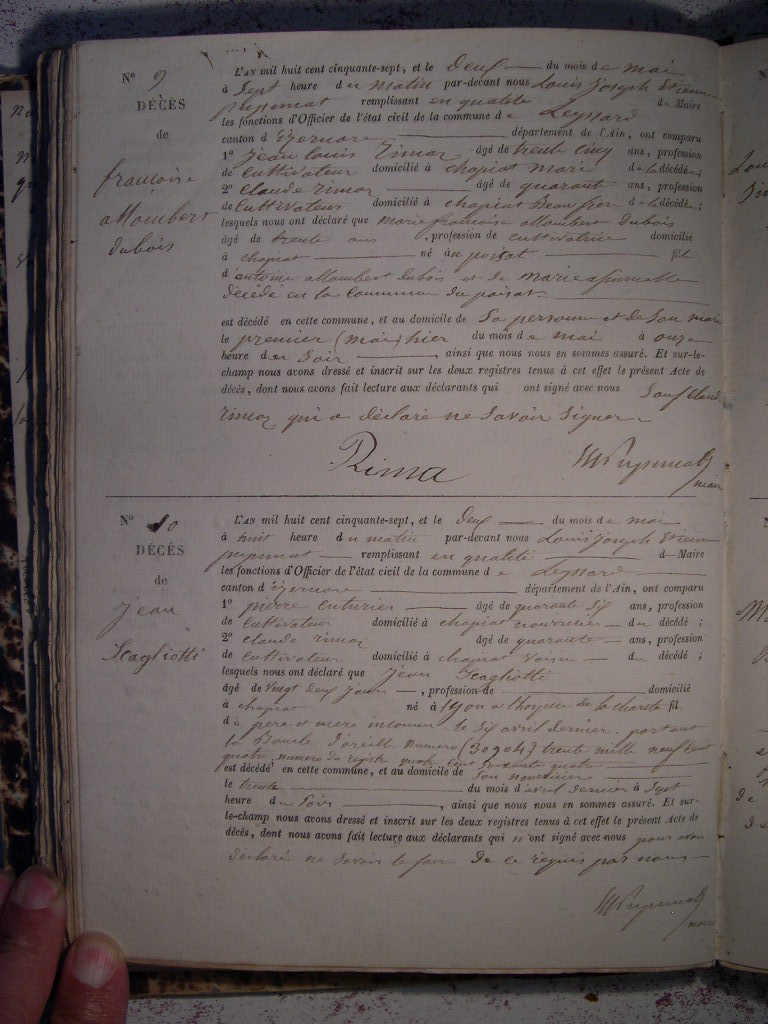 N° 9
DÉCÈS
de
françoise
allombert
dubois
L'AN mil huit cent cinquante-sept, et le deux du mois de mai
à sept heure du matin par-devant nous Louis Joseph Etienne
pupunat remplissant en qualité de Maire
les fonctions d'Officier de l'état civil de la commune de Leyssard
canton d'izernore département de l'Ain, ont comparu
1° jean louis Rimoz âgé de trente cinq ans, profession
de cultivateur domicilié à chapiat mari de la décédée;
2° claude rimoz âgé de quarant ans, profession
de cultivateur domicilié à chapiat Beau frer de la décédée;
lesquels nous ont déclaré que marie françoise allombert dubois
âgé de trente ans, profession de cultivatrice domicilié
à chapiat né au poizat fil
d'antoine allombert dubois et de marie
décédé en la commune du poizat
est décédé en cette commune, et au domicile de Sa personne et de Son mari
le premier (mai) hier du mois de mai à onze
heure du Soir, ainsi que nous nous en sommes assuré. Et sur-le-
champ nous avons dressé et inscrit sur les deux registres tenus à cet effet le présent Acte de
décès, dont nous avons fait lecture aux déclarants qui ont signé avec nous Sauf Claude
rimoz qui a déclaré ne Savoir Signer
Rima
Pupunat
maire
N° 10
DÉCÈS
de
jean
Scagliotti
L'AN mil huit cent cinquante-sept, et le deux du mois de mai
à huit heure du matin par-devant nous Louis Joseph Etienne
pupunat remplissant en qualité d Maire
les fonctions d'Officier de l'état civil de la commune de Leyssard
canton d'izernore département de l'Ain, ont comparu
1° pierre cuturier âgé de quarante six ans, profession
de cultivateur domicilié à chapiat nourricier du décédé;
2° claude rimoz âgé de quarante ans, profession
de cultivateur domicilié à chapiat voisin du décédé;
lesquels nous ont déclaré que jean Scagliotti
âgé de vingt deux jours, profession de domicilié
à chapiat né à lyon a l'hospice de la charité fil
d'e pere et mere inconnu le Six avril dernier portant
la Boucle d'oreille numero (30904) trente mille neuf cent
quatre numero du registre quatre cent Soixante quatre
est décédé en cette commune, et au domicile de Son nourricier
le trente du mois d'avril dernier à Sept
heure du Soir, ainsi que nous nous en sommes assuré. Et sur-
le-champ nous avons dressé et inscrit sur les deux registres tenus à cet effet le présent Acte de
décès, dont nous avons fait lecture aux déclarants qui n'ont signé avec nous pour avoir
déclaré ne Savoir le faire de ce requis par nous
Pupunat
maire